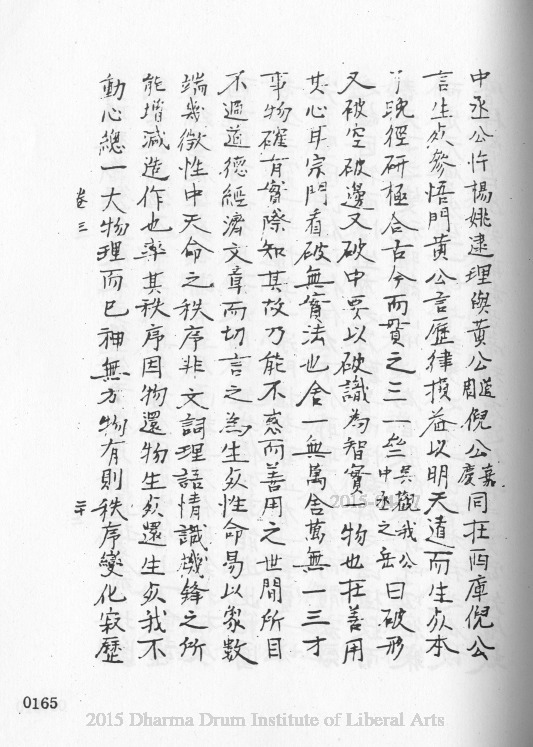 中丞公忤楊姚逮理與黃公道周倪公嘉慶同在西庫倪公
言生死參悟門黃公言歷律損益以明天道而生死本
了脫徑研極合古今而貫之三一 吳觀我公中丞之岳曰破形
又破空破邊又破中要以破識為智實一物也在善用
其心耳宗門看破無實法也舍一無萬舍萬無一三才
事物確有實際知其故乃能不惑而善用之世間所目
不過道德經濟文章而切言之為生死性命易以象數
端幾徵性中天命之秩序非文詞理語情識機鋒之所
能增減造作也率其秩序因物還物生死還生死我不
動心總一大物理而已神無方物有則秩序變化寂歷
卷三
二十
0165
2015 Dharma Drum Institute of Liberal Arts